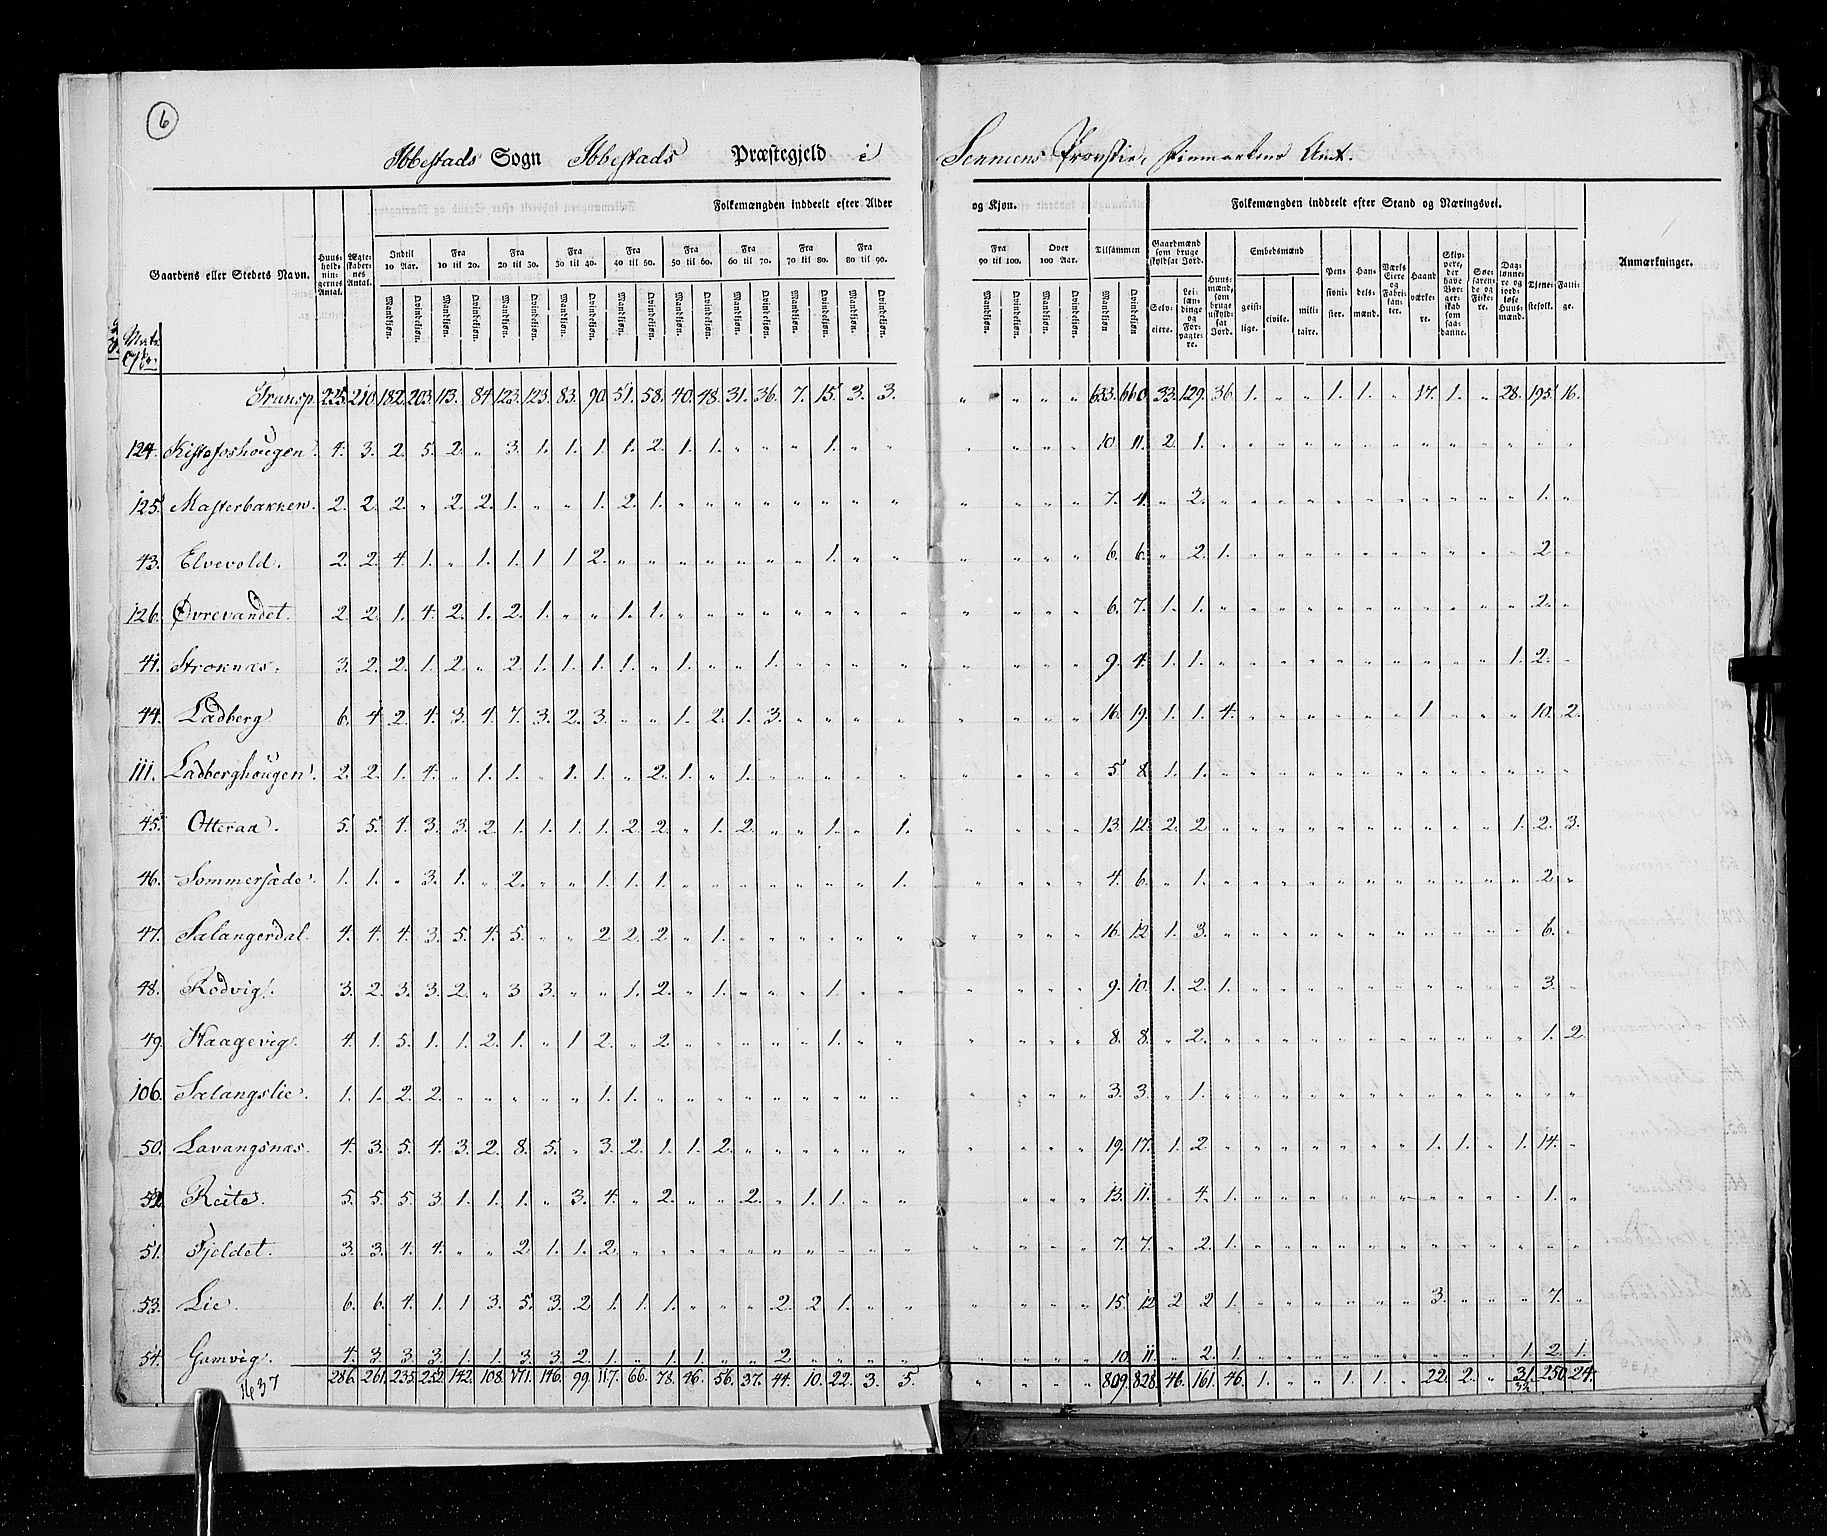 6
Ibbestads Sogn Ibbestads Præstegjeld i Senniens Provstie, Finmarkens Amt.
Folkemængden inddeelt efter Alder og Kjøn. Folkemængden inddeelt efter Stand og Næringsvei.
Gaardens eller Stedets Navn. Huus-holdnin-gernes Antal. Ægte-skaber-nes Antal. Indtil 10 Aar. Fra 10 til 20. Fra 20 til 30. Fra 30 til 40. Fra 40 til 50. Fra 50 til 60. Fra 60 til 70. Fra 70 til 80. Fra 80 til 90. Fra 90 til 100. Over 100 Aar. Tilsammen Gaardmænd som bruge skyldsat Jord. Huus-mænd, som bruge uskyld-sat Jord. Embedsmænd Pen-sioni-ster. Han-dels-mænd. Værks Eiere og Fabri-kan-ter. Haand-værke-re. Skip-pere, der have Bor-ger-skab som saa-danne. Søe-faren-de og Fiske-re. Dag-lønne-re og jord-løse Huus-mænd. Tjene-stefolk. Fatti-ge. Anmærkninger.
Mandkjøn. Qvindekjøn. Selv-eiere. Lei-læn-dinge og For-pagte-re. geist-lige. civile. mili-taire.
Matr. No.
Transp. 225. 210. 182. 203. 113. 84. 123. 123. 83. 90. 51. 58. 40. 48. 31. 36. 7. 15. 3. 3. " " " " 633. 660. 33. 129. 36. 1. " " 1. 1. " 17. 1. " 28. 195. 16.
124. Kistefoshougen. 4. 3. 2. 5. 2. " 3. 1. 1. 1. 1. 2. 1. 1. " " " 1. " " " " " " 10. 11. 2. 1. " " " " " " " " " " " " "
125. Masterbakken. 2. 2. 2. " 2. 2. 1. " " 1. 2. 1. " " " " " " " " " " " " 7. 4. " 2. " " " " " " " " " " " 1. "
43. Elvevold. 2. 2. 4. 1. " 1. 1. 1 1 2. " " " " " " " 1. " " " " " " 6. 6. " 2. 1. " " " " " " " " " " 2 "
126. Øvrevandet. 2. 2. 1. 4. 2. 1. 2. 1. " " 1. 1. " " " " " " " " " " " " 6. 7. 1. 1. " " " " " " " " " " " 2. "
41. Stroknæs. 3. 2. 2. 1. 2. " 2. 1. 1. 1. 1. " 1. " " 1. " " " " " " " " 9. 4. 1. 1. " " " " " " " " " " 1. 2. "
44. Ladberg 6. 4. 2. 4. 3. 4. 7. 3. 2. 3. " " 1. 2. 1. 3. " " " " " " " " 16. 19. 1. 1. 4. " " " " " " 1 " " " 10. 2.
111. Ladberghougen. 2. 2. 1. 4. " 1. 1. " 1. 1. " 2. 1. " 1. " " " " " " " " " 5 8 1. 1. " " " " " " " " " " " " "
45. Otteraa. 5. 5. 4. 3. 3. 2. 1. 1. 1. 1. 2. 2. " 1. 2. " " 1. " 1. " " " " 13. 12. 2. 2 " " " " " " " " " " 1. 2. 3.
46. Sommersæde. 1. 1. " 3. 1. " 2. " " 1. 1. 1. " " " " " " " 1. " " " " 4. 6. " 1. " " " " " " " " " " " 2. "
47. Salangerdal. 4. 4. 4. 3. 5. 4. 5. " " 2 2. 2 " 1. " " " " " " " " " " 16. 12 1. 3. " " " " " " " " " " " 6. "
48. Rodvig. 3. 2. 3. 3. 2. " 3 3. " " 1. 2. " 1. " " " 1. " " " " " " 9. 10. 1. 2. 1. " " " " " " " " " " 3. "
49. Haagevig. 4. 1. 5. 1. 1. 2. 1. " 1 2. " 2. " " " " " 1. " " " " " " 8. 8. " 2. " " " " " " " " " " " 1. 2
106. Salangslie. 1. 1. 2. 2. " " " " " 1. 1. " " " " " " " " " " " " " 3. 3. " 1. " " " " " " " " " " " " "
50. Lavangsnæs. 4. 3. 5. 4. 3. 2. 8. 5. " 3. 2. 1. 1. 2. " " " " " " " " " " 19. 17. 1. 2 " " " " " " " 1. 1. " 1. 14. "
52. Reite. 5. 5. 5. 3. 1. 1. 1. " 3. 4. " 2. " " 2. " 1. 1. " " " " " " 13. 11. " 4. 1. " " " " " " " " " " 1. "
51. Fjeldet. 3. 3. 4. 4. " " 2. 1. 1. 2. " " " " " " " " " " " " " " 7. 7. " 2. 1. " " " " " " " " " " " "
53. Lie. 6. 6. 4. 1. 1 3. 5. 3. 2 1. 1. 1. " " " 2. 2. 1. " " " " " " 15. 12 2 2 1. " " " " " " 3. " " " 7. "
54. Gamvig. 4. 3. 3. 3. 1. 1. 3. 3. 2. 1. " 1. 1. " " 2 " " " " " " " " 10. 11. " 2. 1. " " " " " " " " " 1. 2. 1.
1637 286. 261. 235. 252. 142. 108. 171. 146. 99. 117. 66. 78. 46. 56. 37. 44. 10. 22. 3. 5. " " " " 809. 828. 46. 161. 46. 1. " " 1. 1. " 22. 2. " 31. 250. 24.